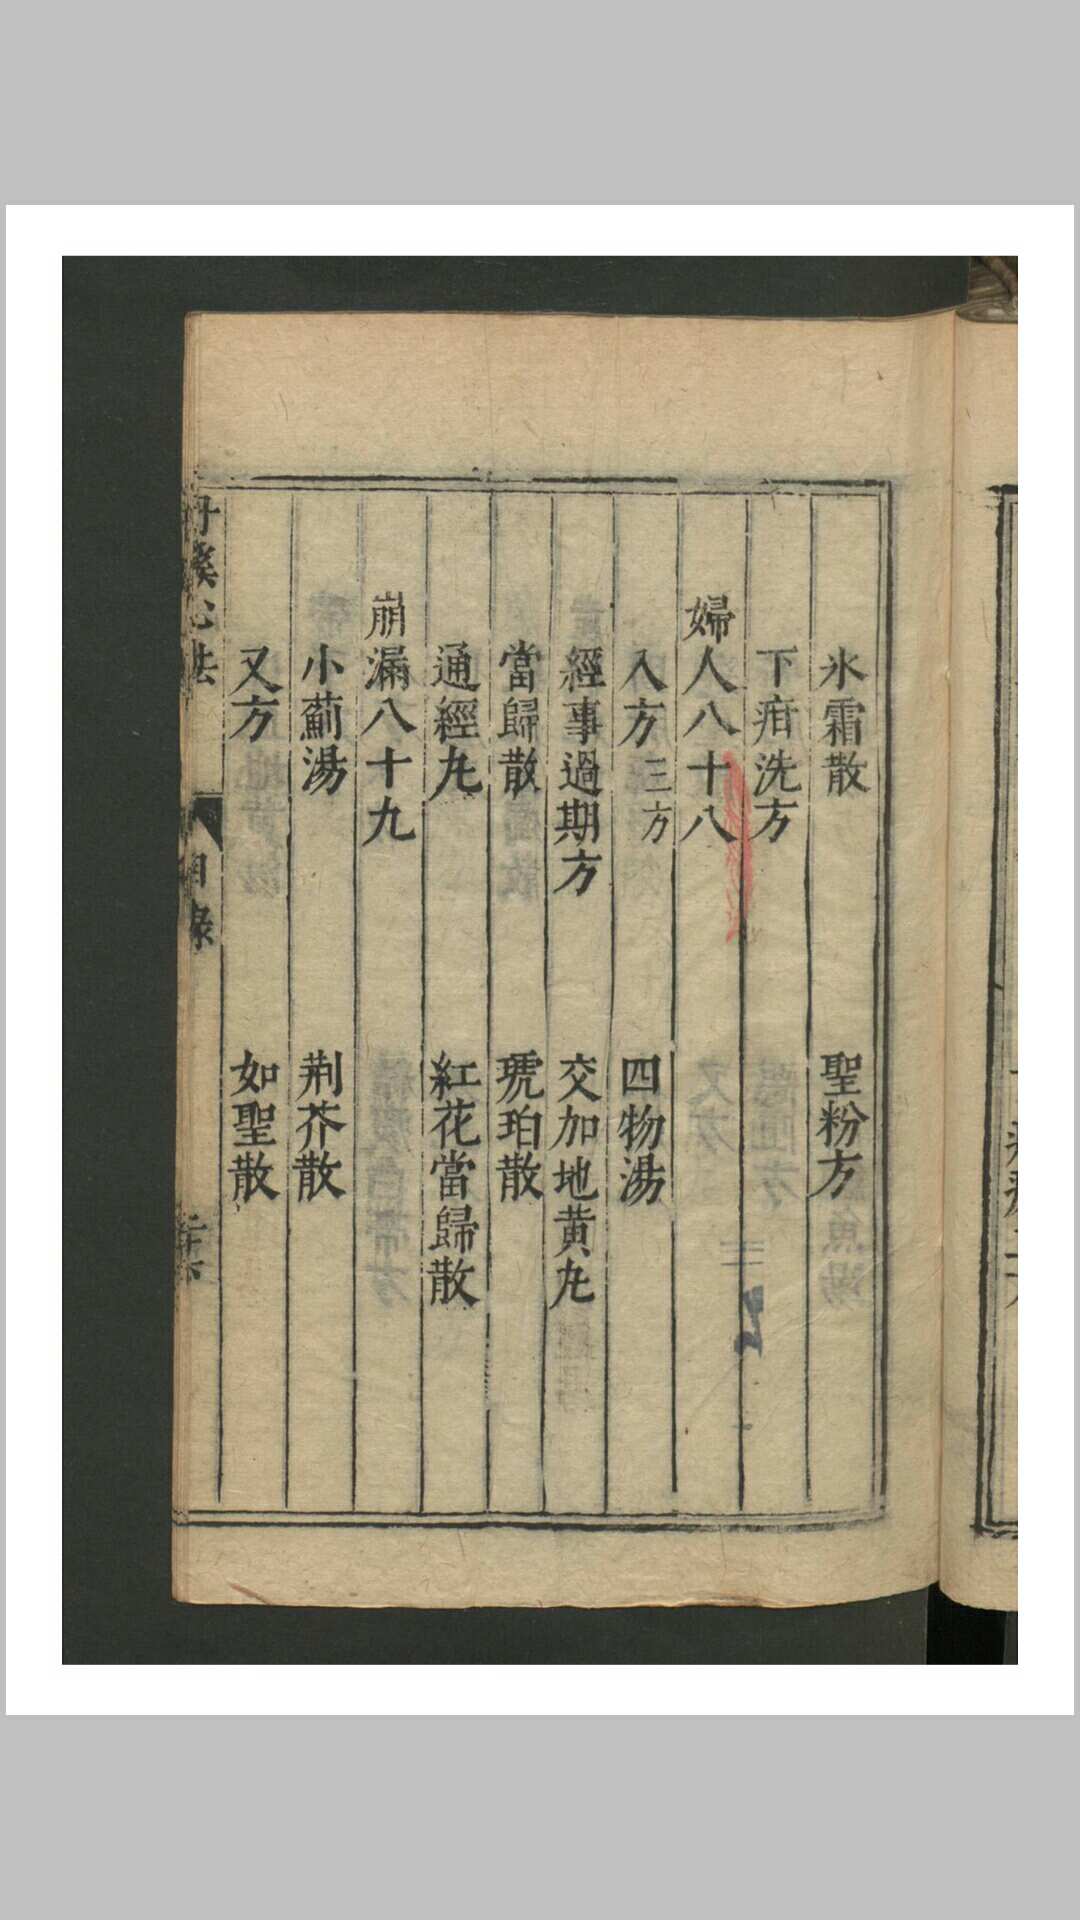 氷霜散　聖粉方
下疳洗方
婦人八十八
入方三方　四物湯
經事過期方　交加地黄丸
當歸散　琥珀散
通經丸　紅花當歸散
崩漏八十九
小薊湯　荆芥散
又方　如聖散
丹溪心法　目録